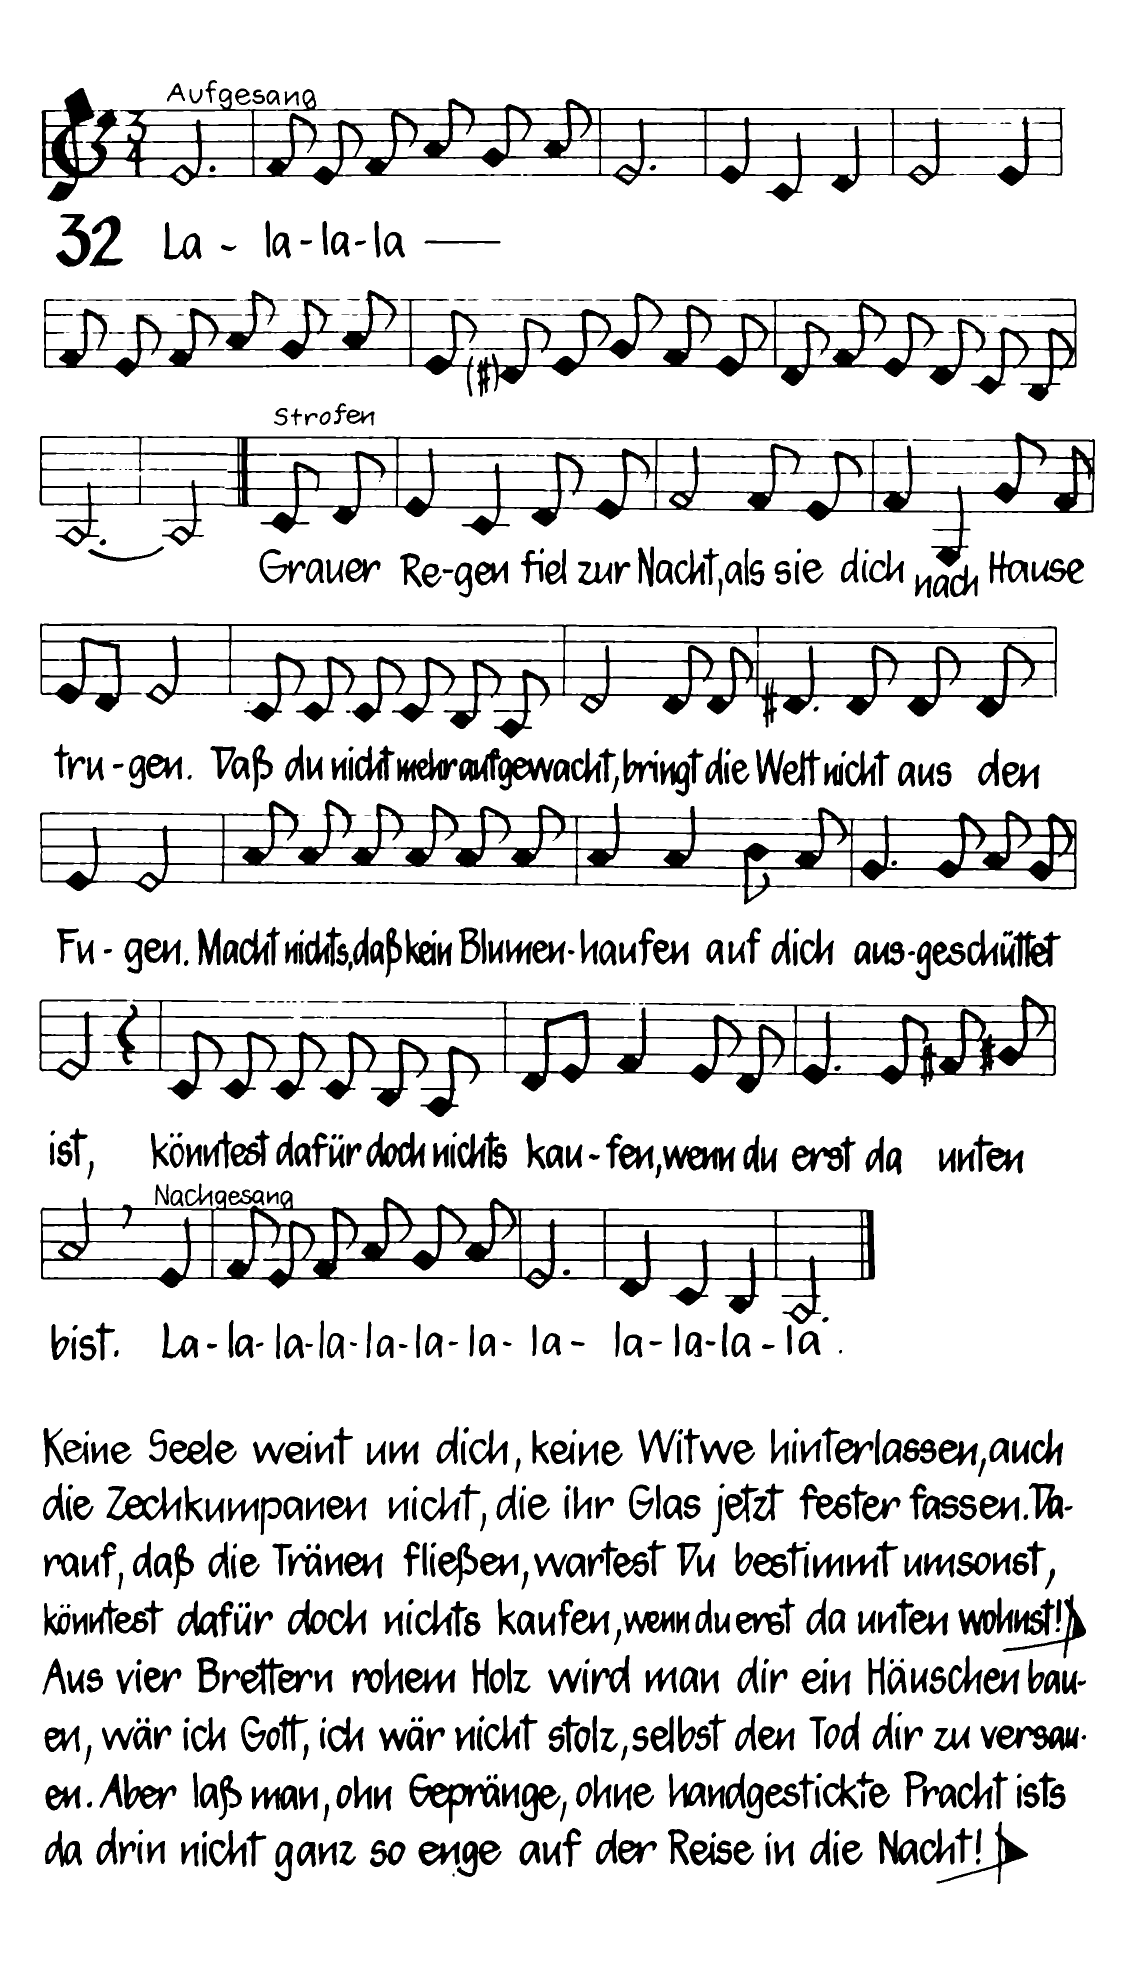 Aufgesang
3
4
32 La - la-la-la —
Strofen
Grauer Re-gen fiel zur Nacht, als sie dich nach Hause
tru-gen. Daß du nicht mehr aufgewacht, bringt die Welt nicht aus den
Fu-gen. Macht nichts, daß kein Blumen-haufen auf dich aus-geschüttet
ist, könntest dafür doch nichts kau-fen, wenn du erst da unten
Nachgesang
bist. La-la-la-la-la-la-la-la- la-la-la-la.
Keine Seele weint um dich, keine Witwe hinterlassen, auch
die Zechkumpanen nicht, die ihr Glas jetzt fester fassen. Da-
rauf, daß die Tränen fließen, wartest Du bestimmt umsonst,
könntest dafür doch nichts kaufen, wenn du erst da unten wohnst!
Aus vier Brettern rohem Holz wird man dir ein Häuschen bau-
en, wär ich Gott, ich wär nicht stolz, selbst den Tod dir zu versau-
en. Aber laß man, ohn Gepränge, ohne handgestickte Pracht ists
da drin nicht ganz so enge auf der Reise in die Nacht!